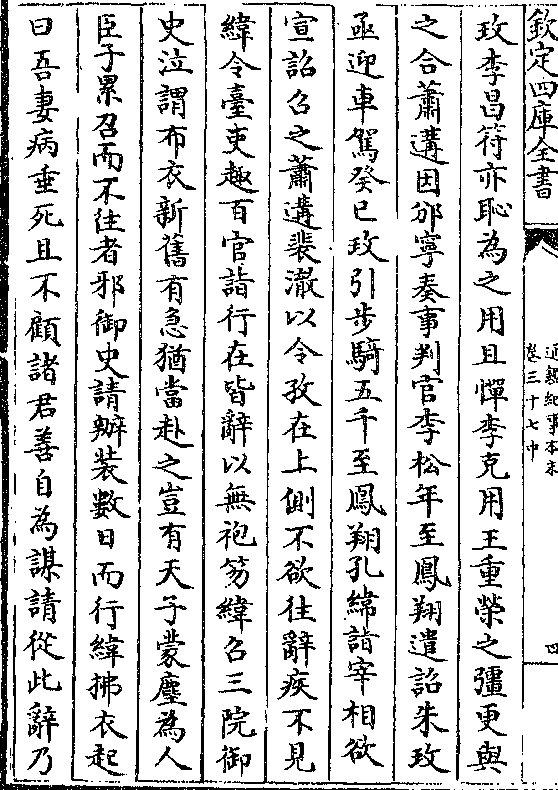 欽定四庫全書
通鑑紀事本末
卷三十七中
四
玫李昌符亦恥為之用且憚李克用王重榮之彊更與
之合蕭遘因邠寧奏事判官李松年至鳳翔遣詔朱玫
亟迎車駕癸巳玫引步騎五千至鳳翔孔緯詣宰相欲
宣詔召之蕭遘裴澈以令孜在上側不欲往辭疾不見
緯令臺吏趣百官詣行在皆辭以無袍笏緯召三院御
史泣謂布衣新舊有急猶當赴之豈有天子蒙塵為人
臣子累召而不往者邪御史請辦裝數日而行緯拂衣起
曰吾妻病垂死且不顧諸君善自為謀請從此辭乃